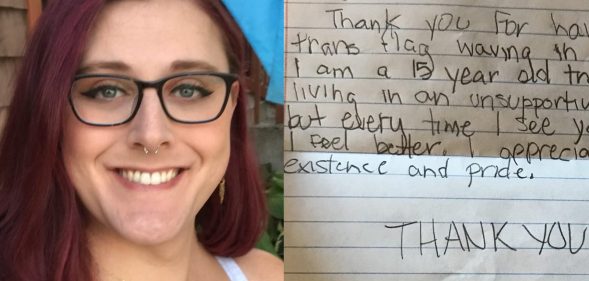 Thank you for hav
trans flag waving in
I am a 15 year old tr
living in an unsupportiv
but every time I see y
I feel better. I eprecia
existence and pride.
THANK YOU